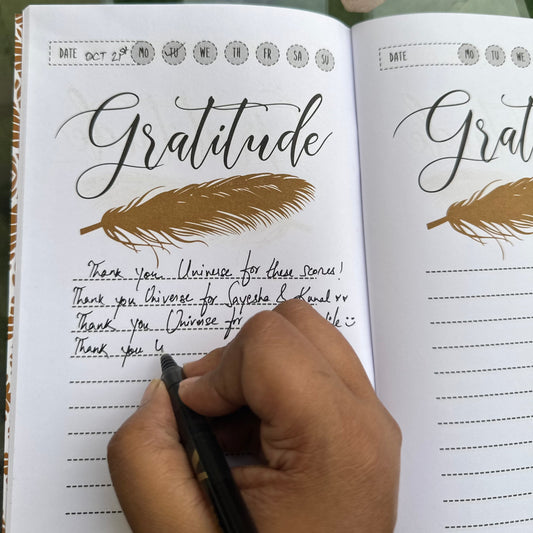 DATE OCT 21st MO TU WE TH FR SA SU
Gratitude
Thank you Universe for these scores!
Thank you Universe for Sayesha & Kunal ♥♥
Thank you Universe for life ☺
Thank you U
DATE MO TU WE
Grat